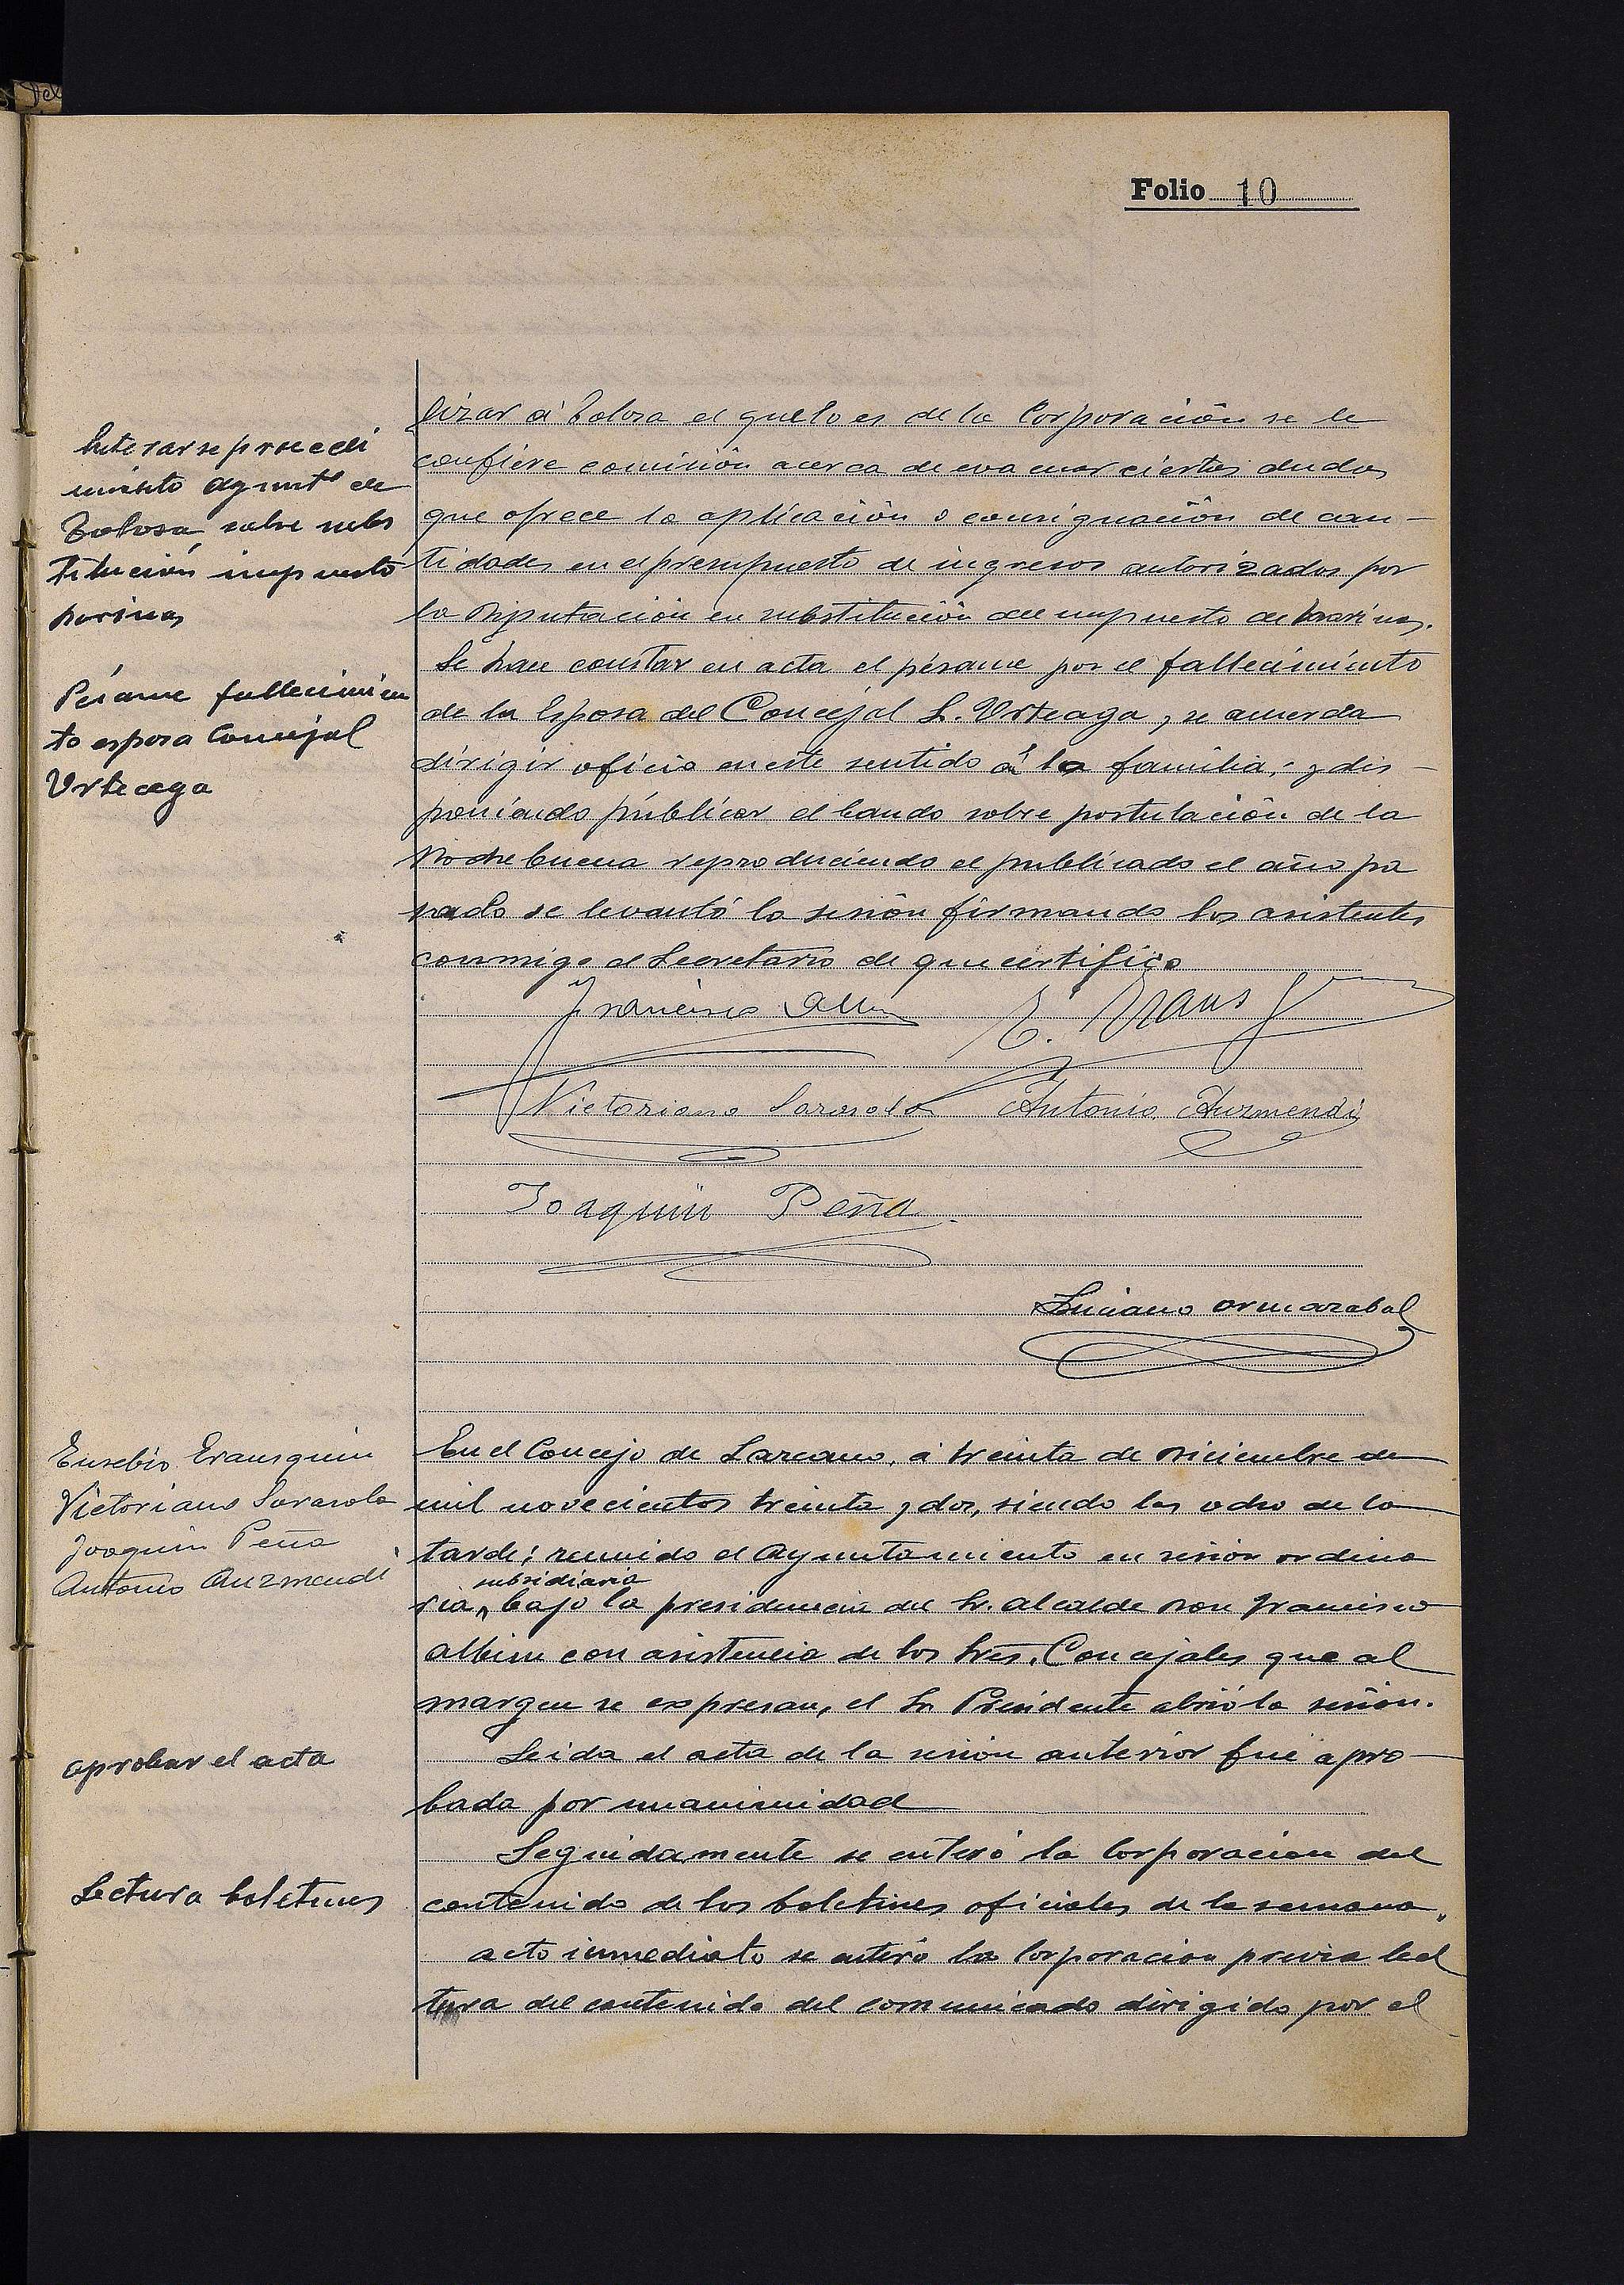 Folio 10
Enterarse procedi
miento Ayuntº de
Tolosa sobre subs
titución impuesto
harinas
Pésame fallecimien
to esposa Concejal
Urteaga
lizar á Tolosa el que lo es de la Corporación se le
confiere comisión acerca de evacuar ciertas dudas
que ofrece la aplicación o consignación de can-
tidades en el presupuesto de ingresos autorizados por
la Diputación en substitución del impuesto de harinas.
Se hace constar en acta el pésame por el fallecimiento
de la Esposa del Concejal S. Urteaga, se acuerda
dirigir oficio en este sentido á la familia; y dis-
poniendo públicar el bando sobre postulación de la
Noche buena reproduciendo el publicado el año pa
sado se levantó la sesión firmando los asistentes
conmigo el Secretario de que certifico
Francisco
Victoriano Sarasola Antonio Auzmendi
Joaquín Peña
Luciano Ormazabal
Eusebio Erausquin
Victoriano Sarasola
Joaquin Peña
Antonio Auzmendi
En el Concejo de Lazcano, á treinta de Diciembre de
mil novecientos treinta y dos, siendo las ocho de la
tarde; reunido el Ayuntamiento en sesión ordina
subsidiaria
ria, bajo la presidencia del Sr. Alcalde Don Francisco
Albisu con asistencia de los Sres. Concejales que al
margen se expresan, el Sr. Presidente abrió la sesión.
aprobar el acta
Leida el acta de la sesión anterior fué apro-
bada por unanimidad
Lectura boletines
Seguidamente se enteró la Corporación del
contenido de los boletines oficiales de la semana.
acto inmediato se enteró la Corporación previa lec
tura del contenido del comunicado dirigido por el